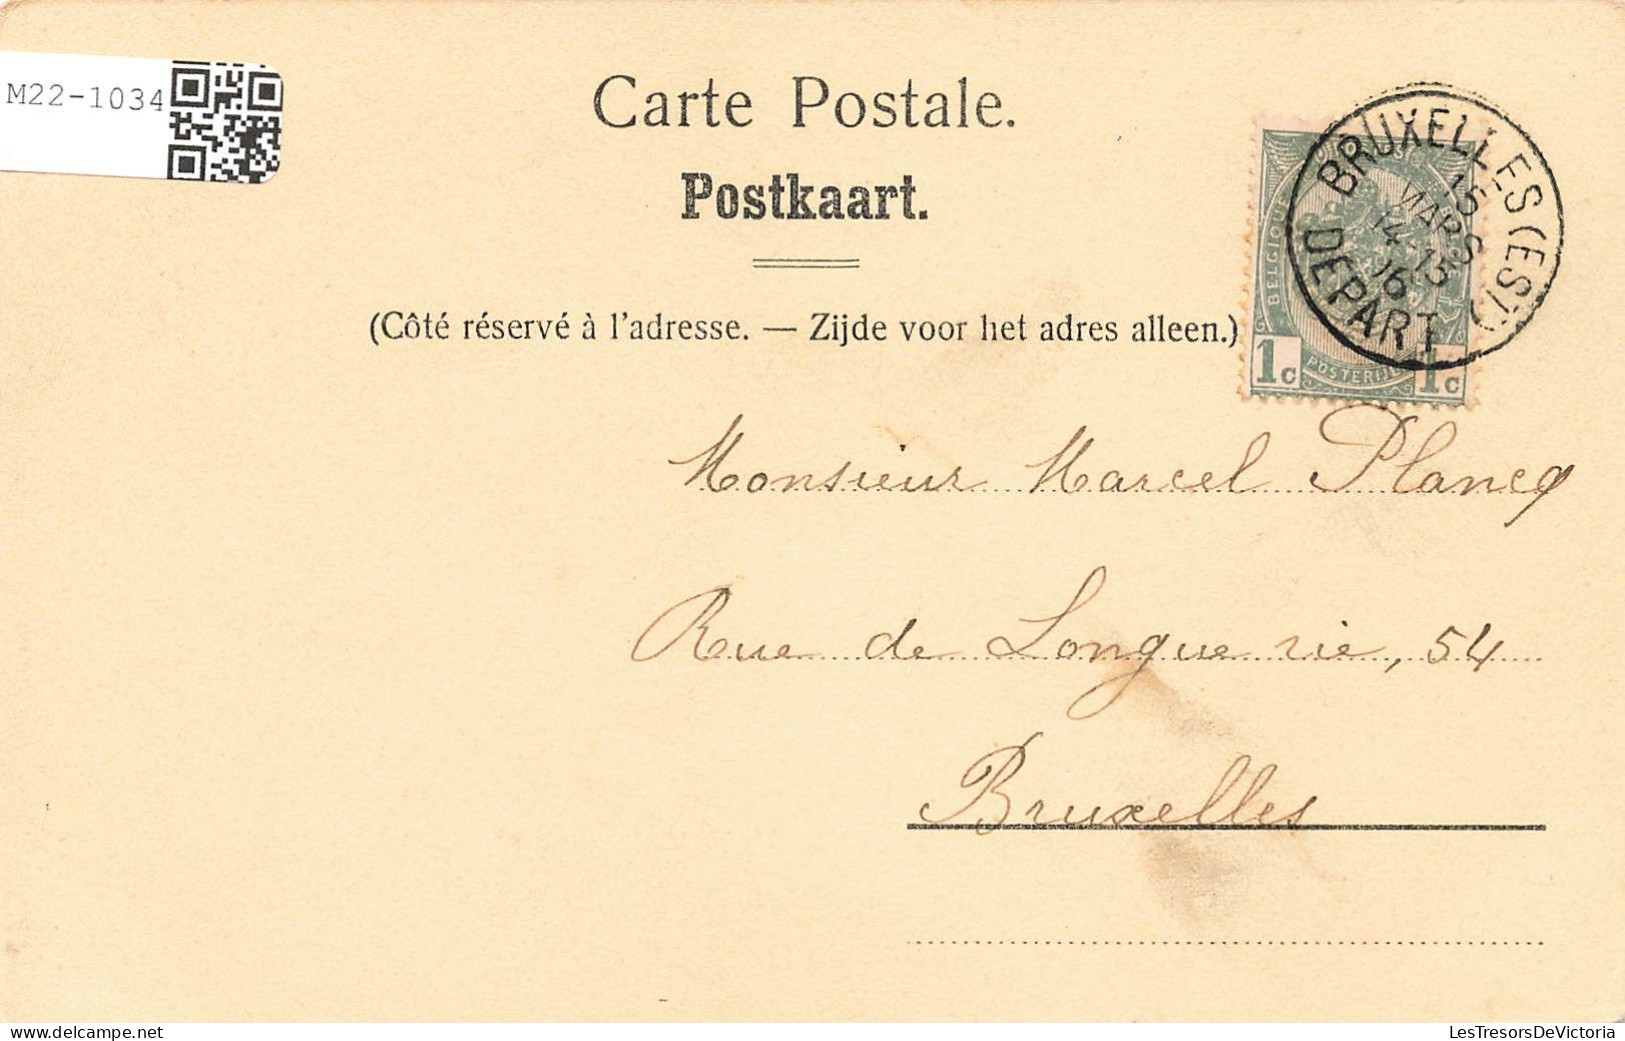 M22-1034
Carte Postale.
Postkaart.
(Côté réservé à l'adresse. — Zijde voor het adres alleen.)
BRUXELLES (EST)
15
MARS
14-15
DEPART
BELGIQUE
1c POSTERIJEN 1c
Monsieur Marcel Plancq
Rue de Longue vie, 54
Bruxelles
delcampe.net
LesTresorsDeVictoria